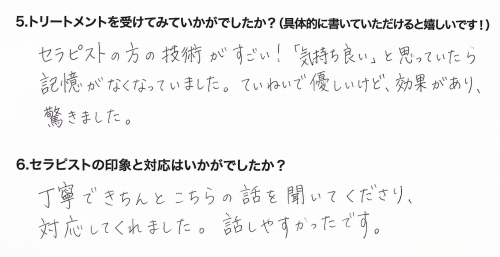 5.トリートメントを受けてみていかがでしたか？（具体的に書いていただけると嬉しいです！）
セラピストの方の技術がすごい！「気持ち良い」と思っていたら
記憶がなくなっていました。ていねいで優しいけど、効果があり、
驚きました。
6.セラピストの印象と対応はいかがでしたか？
丁寧できちんとこちらの話を聞いてくださり、
対応してくれました。話しやすかったです。